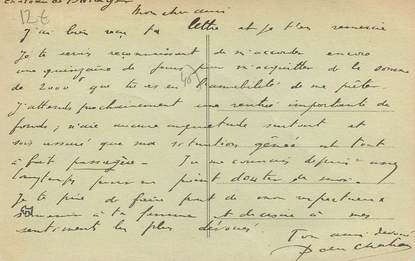 12 €
Château de
Mon cher ami
J'ai bien reçu ta lettre et je t'en remercie
Je te serais reconnaissant de m'accorder encore
une quinzaine de jours pour m'acquitter de la somme
de 2000 f que tu as eu l'amabilité de me prêter.
J'attends prochainement une rentrée importante de
fonds ; n'aie aucune inquiétude surtout et
sois assuré que ma situation gênée est tout
à fait passagère. Tu me connais depuis assez
longtemps pour ne point douter de moi.
Je te prie de faire part de mon respectueux
souvenir à ta femme et de croire à mes
sentiments les plus dévoués.
Ton ami dévoué